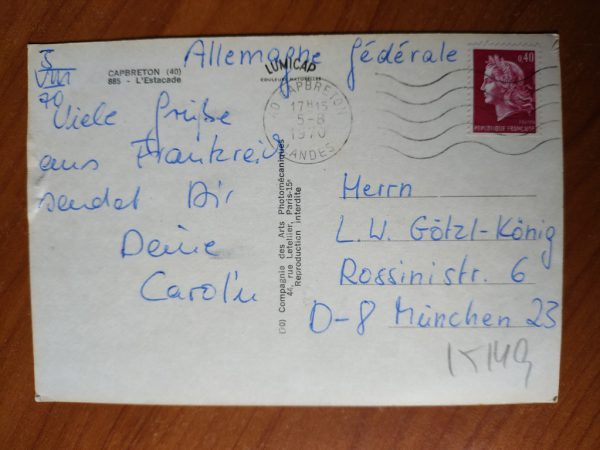 5
VIII
70
CAPBRETON (40)
885 - L'Estacade
Allemagne fédérale
LUMICAP
COULEURS NATURELLES
40 CAPBRETON
17H15
5-8
1970
LANDES
0,40
REPUBLIQUE FRANÇAISE
Viele Grüße
aus Frankreich
sendet Dir
Deine
Carolin
(30) Compagnie des Arts Photomécaniques
44, rue Letellier, Paris-15e
Reproduction interdite
Herrn
L.W. Götzl-König
Rossinistr. 6
D-8 München 23